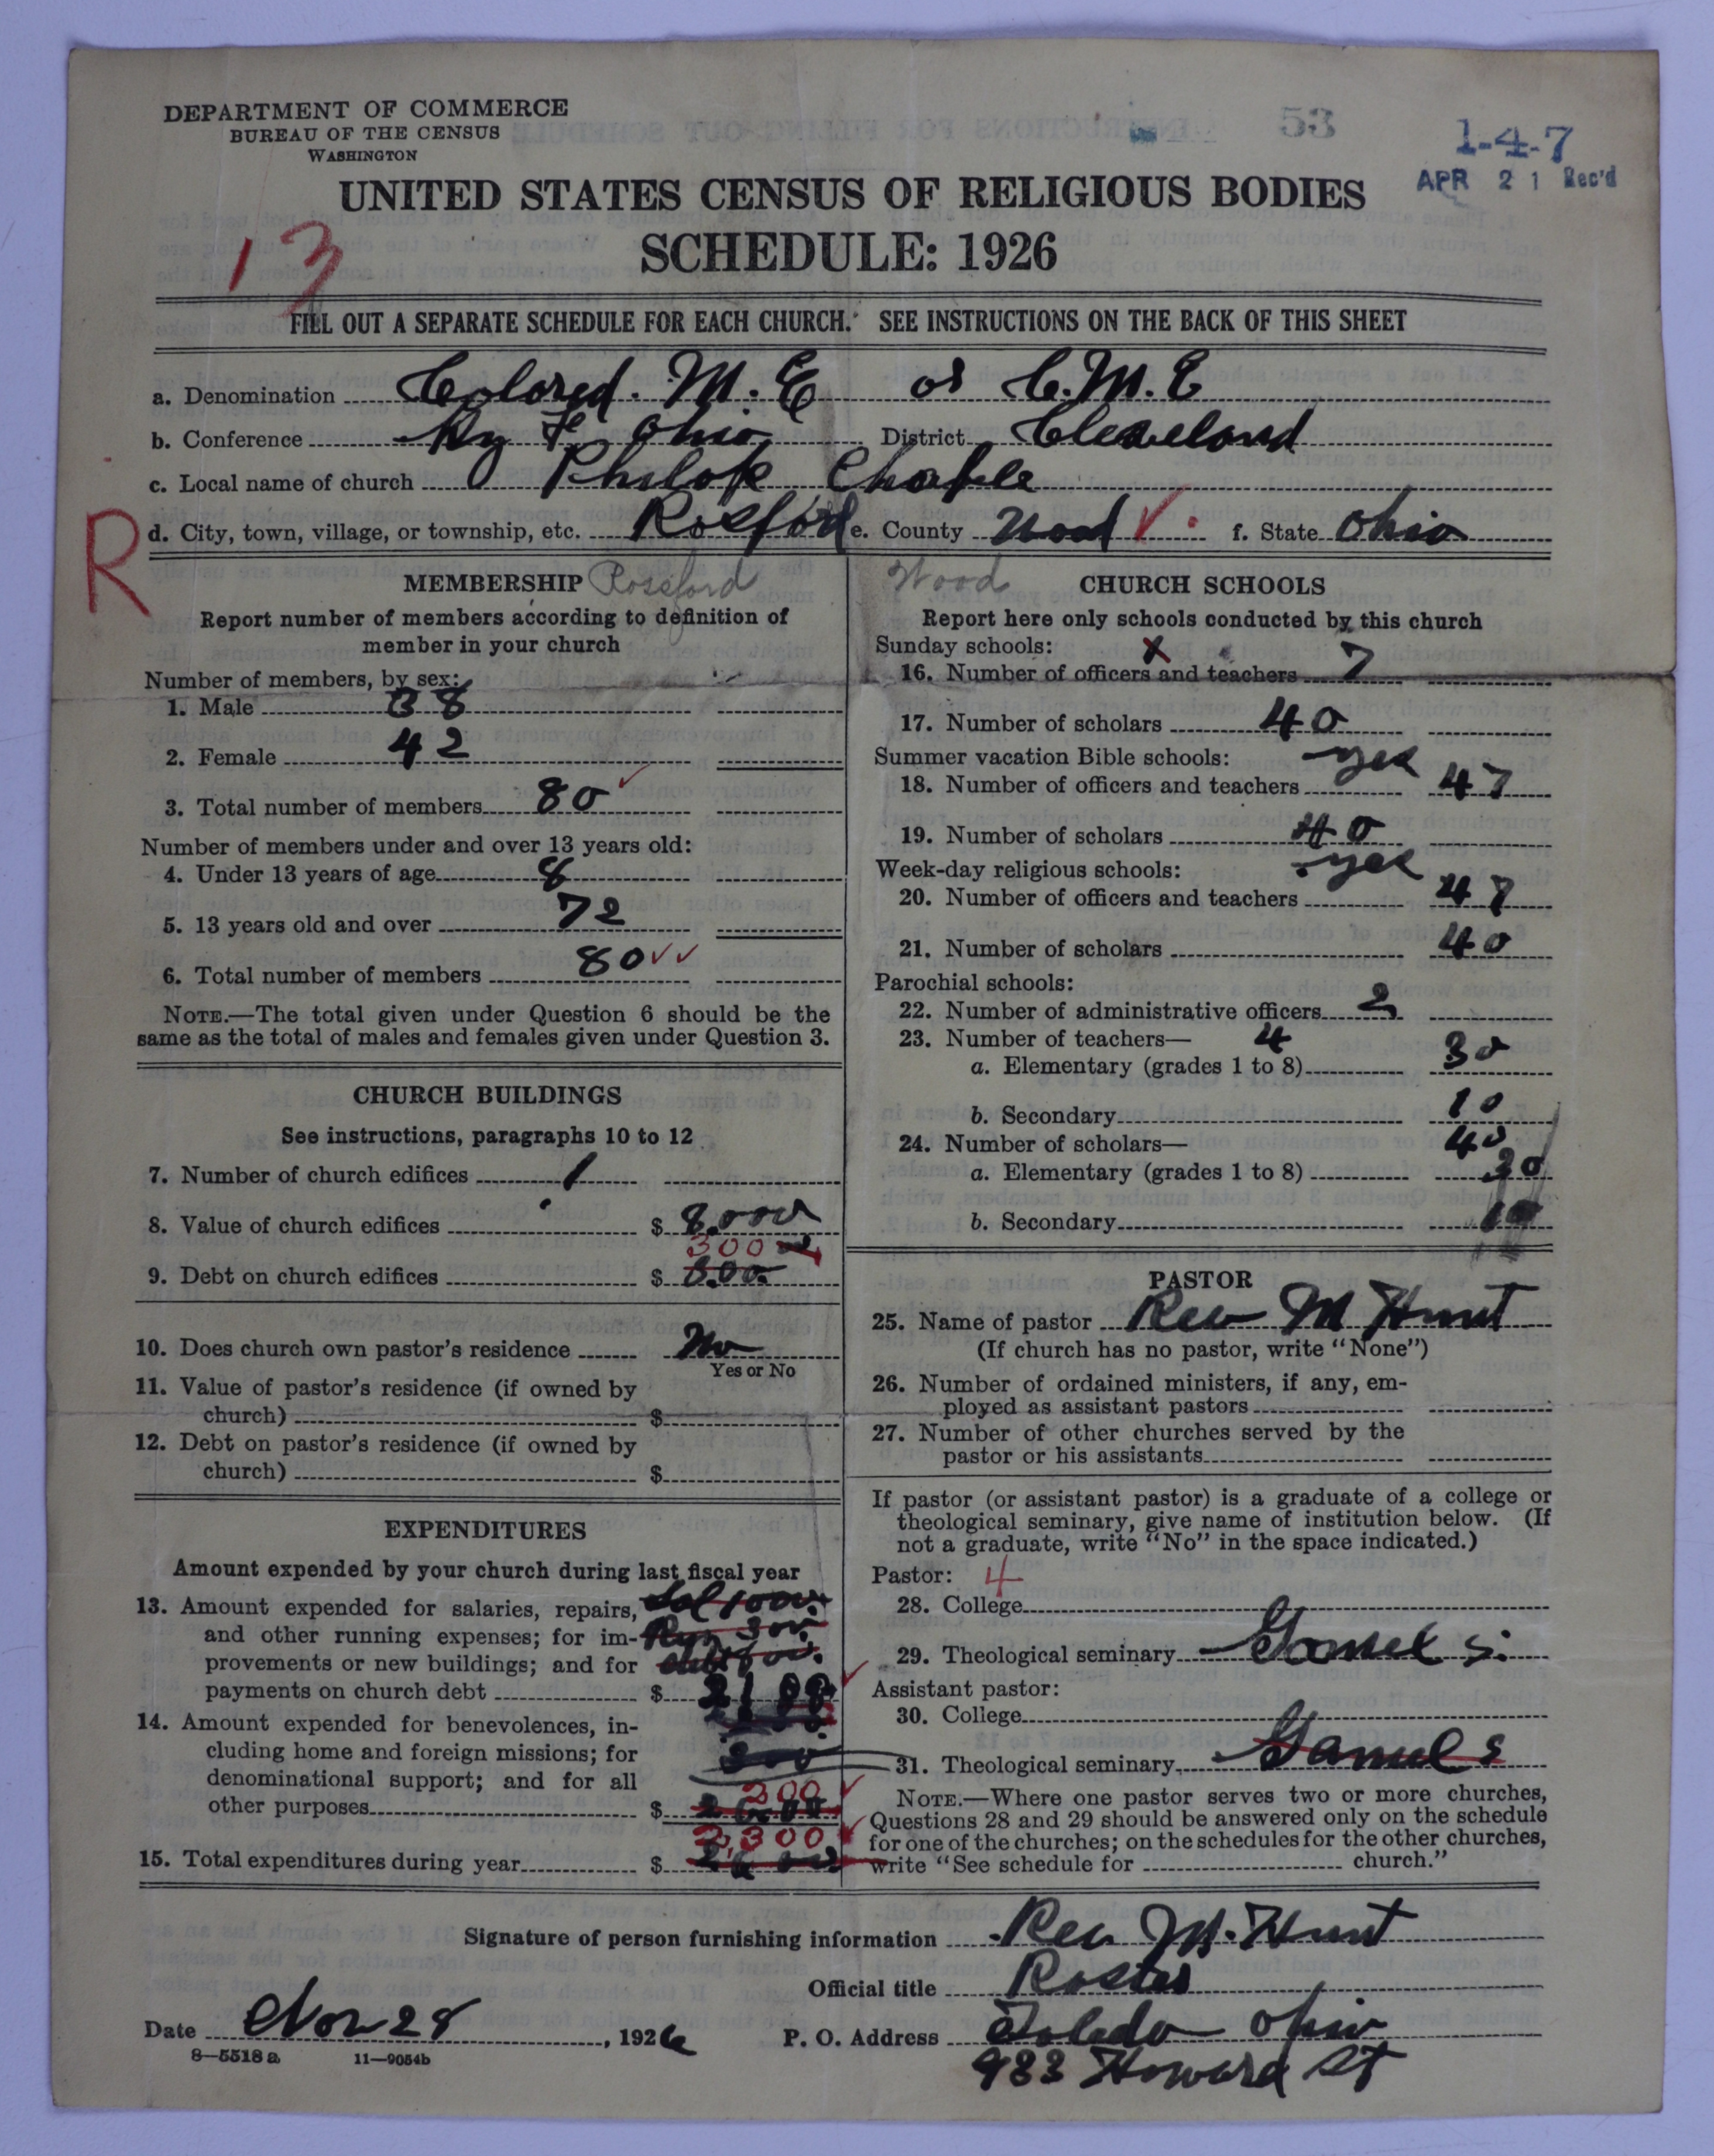 DEPARTMENT OF COMMERCE
BUREAU OF THE CENSUS
WASHINGTON
53
1-4-7
APR 21 Rec'd
UNITED STATES CENSUS OF RELIGIOUS BODIES
SCHEDULE: 1926
13
FILL OUT A SEPARATE SCHEDULE FOR EACH CHURCH. SEE INSTRUCTIONS ON THE BACK OF THIS SHEET
a. Denomination Colored. M. E or C. M. E
b. Conference Ky & Ohio District Cleveland
c. Local name of church Philop Chaple
R
d. City, town, village, or township, etc. Rosford e. County Wood f. State Ohio
MEMBERSHIP Rossford
Report number of members according to definition of
member in your church
Number of members, by sex:
1. Male 38
2. Female 42
3. Total number of members 80
Number of members under and over 13 years old:
4. Under 13 years of age 8
5. 13 years old and over 72
6. Total number of members 80
NOTE.—The total given under Question 6 should be the
same as the total of males and females given under Question 3.
CHURCH BUILDINGS
See instructions, paragraphs 10 to 12
7. Number of church edifices 1
8. Value of church edifices $ 8,000
300
9. Debt on church edifices $ 300
10. Does church own pastor's residence No
Yes or No
11. Value of pastor's residence (if owned by
church) $
12. Debt on pastor's residence (if owned by
church) $
EXPENDITURES
Amount expended by your church during last fiscal year
13. Amount expended for salaries, repairs, Sal 1000
and other running expenses; for im-
provements or new buildings; and for
payments on church debt $ 2100
14. Amount expended for benevolences, in-
cluding home and foreign missions; for
denominational support; and for all 200
other purposes $
2,300
15. Total expenditures during year $
Wood CHURCH SCHOOLS
Report here only schools conducted by this church
Sunday schools: x
16. Number of officers and teachers 7
17. Number of scholars 40
Summer vacation Bible schools: yes
18. Number of officers and teachers 47
19. Number of scholars 40
Week-day religious schools: yes
20. Number of officers and teachers 47
21. Number of scholars 40
Parochial schools:
22. Number of administrative officers 2
23. Number of teachers— 4
a. Elementary (grades 1 to 8) 30
b. Secondary 10
24. Number of scholars— 40
a. Elementary (grades 1 to 8) 30
b. Secondary 10
PASTOR
25. Name of pastor Rev M Hunt
(If church has no pastor, write "None")
26. Number of ordained ministers, if any, em-
ployed as assistant pastors
27. Number of other churches served by the
pastor or his assistants
If pastor (or assistant pastor) is a graduate of a college or
theological seminary, give name of institution below. (If
not a graduate, write "No" in the space indicated.)
Pastor: 4
28. College
29. Theological seminary Gamel S.
Assistant pastor:
30. College
31. Theological seminary Gamel S
NOTE.—Where one pastor serves two or more churches,
Questions 28 and 29 should be answered only on the schedule
for one of the churches; on the schedules for the other churches,
write "See schedule for church."
Signature of person furnishing information Rev M. Hunt
Official title Paster
Date Nov 28, 1926 P. O. Address Toledo Ohio
933 Howard St
8—5518 a 11—9054b